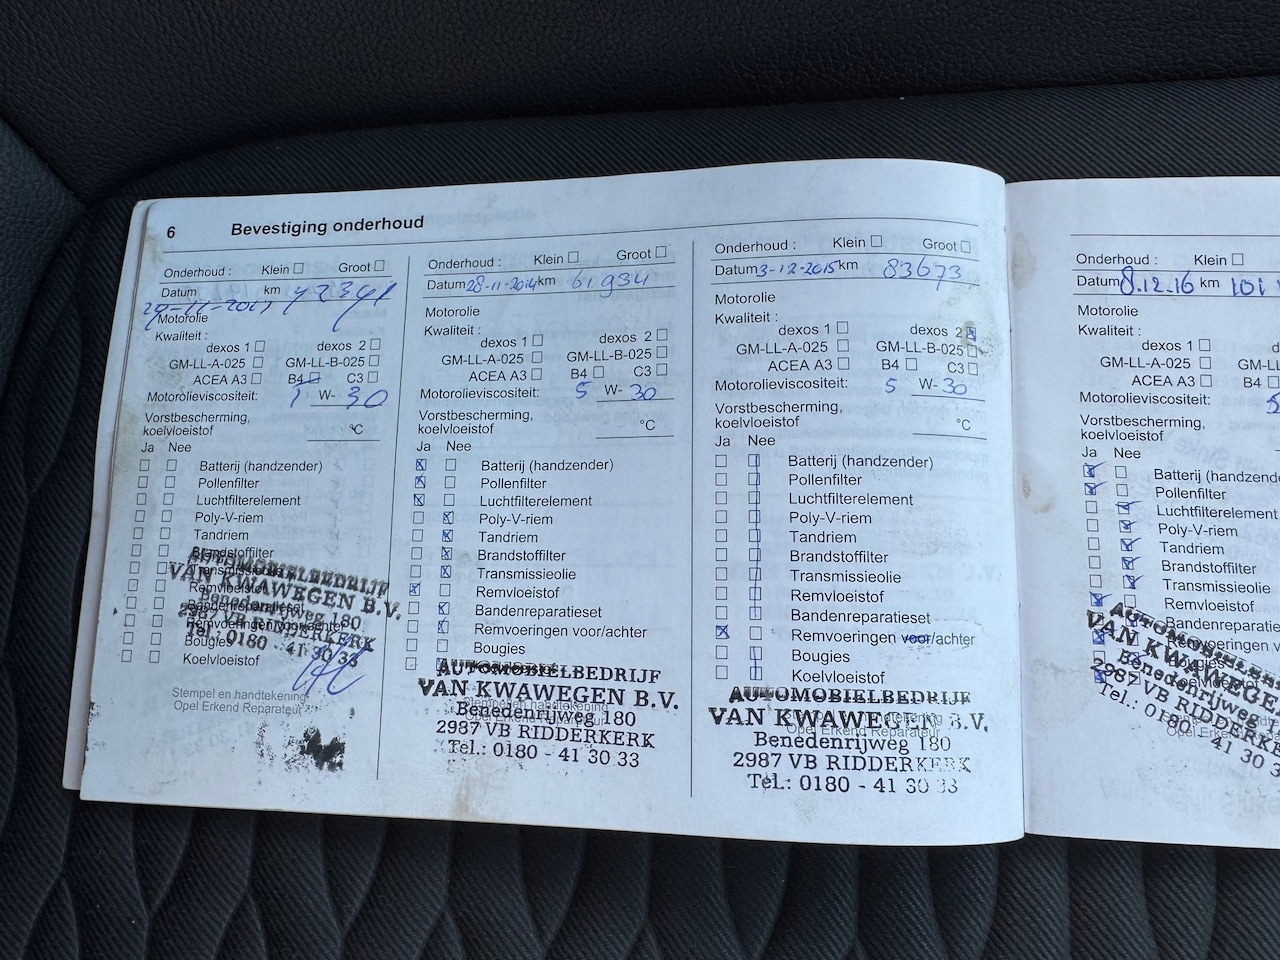 6 Bevestiging onderhoud
Onderhoud : Klein Groot
Datum km
Motorolie
Kwaliteit :
dexos 1 dexos 2
GM-LL-A-025 GM-LL-B-025
ACEA A3 B4 C3
Motorolieviscositeit: W- 30
Vorstbescherming,
koelvloeistof °C
Ja Nee
Batterij (handzender)
Pollenfilter
Luchtfilterelement
Poly-V-riem
Tandriem
Brandstoffilter
Transmissieolie
Remvloeistof
Bandenreparatieset
Remvoeringen voor/achter
Bougies
Koelvloeistof
AUTOMOBIELBEDRIJF
VAN KWAWEGEN B.V.
Benedenrijweg 180
2987 VB RIDDERKERK
Tel.: 0180 - 41 30 33
Stempel en handtekening
Opel Erkend Reparateur
Onderhoud : Klein Groot
Datum 28-11-2014 km 61934
Motorolie
Kwaliteit :
dexos 1 dexos 2
GM-LL-A-025 GM-LL-B-025
ACEA A3 B4 C3
Motorolieviscositeit: 5 W- 30
Vorstbescherming,
koelvloeistof °C
Ja Nee
Batterij (handzender)
Pollenfilter
Luchtfilterelement
Poly-V-riem
Tandriem
Brandstoffilter
Transmissieolie
Remvloeistof
Bandenreparatieset
Remvoeringen voor/achter
Bougies
AUTOMOBIELBEDRIJF
VAN KWAWEGEN B.V.
Benedenrijweg 180
2987 VB RIDDERKERK
Tel.: 0180 - 41 30 33
Onderhoud : Klein Groot
Datum 3-12-2015 km 83673
Motorolie
Kwaliteit :
dexos 1 dexos 2
GM-LL-A-025 GM-LL-B-025
ACEA A3 B4 C3
Motorolieviscositeit: 5 W- 30
Vorstbescherming,
koelvloeistof °C
Ja Nee
Batterij (handzender)
Pollenfilter
Luchtfilterelement
Poly-V-riem
Tandriem
Brandstoffilter
Transmissieolie
Remvloeistof
Bandenreparatieset
Remvoeringen voor/achter
Bougies
Koelvloeistof
AUTOMOBIELBEDRIJF
VAN KWAWEGEN B.V.
Opel Erkend Reparateur
Benedenrijweg 180
2987 VB RIDDERKERK
Tel.: 0180 - 41 30 33
Onderhoud : Klein
Datum 8.12.16 km 101
Motorolie
Kwaliteit :
dexos 1
GM-LL-A-025
ACEA A3 B4
Motorolieviscositeit: 5
Vorstbescherming,
koelvloeistof
Ja Nee
Batterij (handzende
Pollenfilter
Luchtfilterelement
Poly-V-riem
Tandriem
Brandstoffilter
Transmissieolie
Remvloeistof
VAN KWAWEGEN
Benedenrijweg
2987 VB RIDDERKE
Tel.: 0180 41 30 3